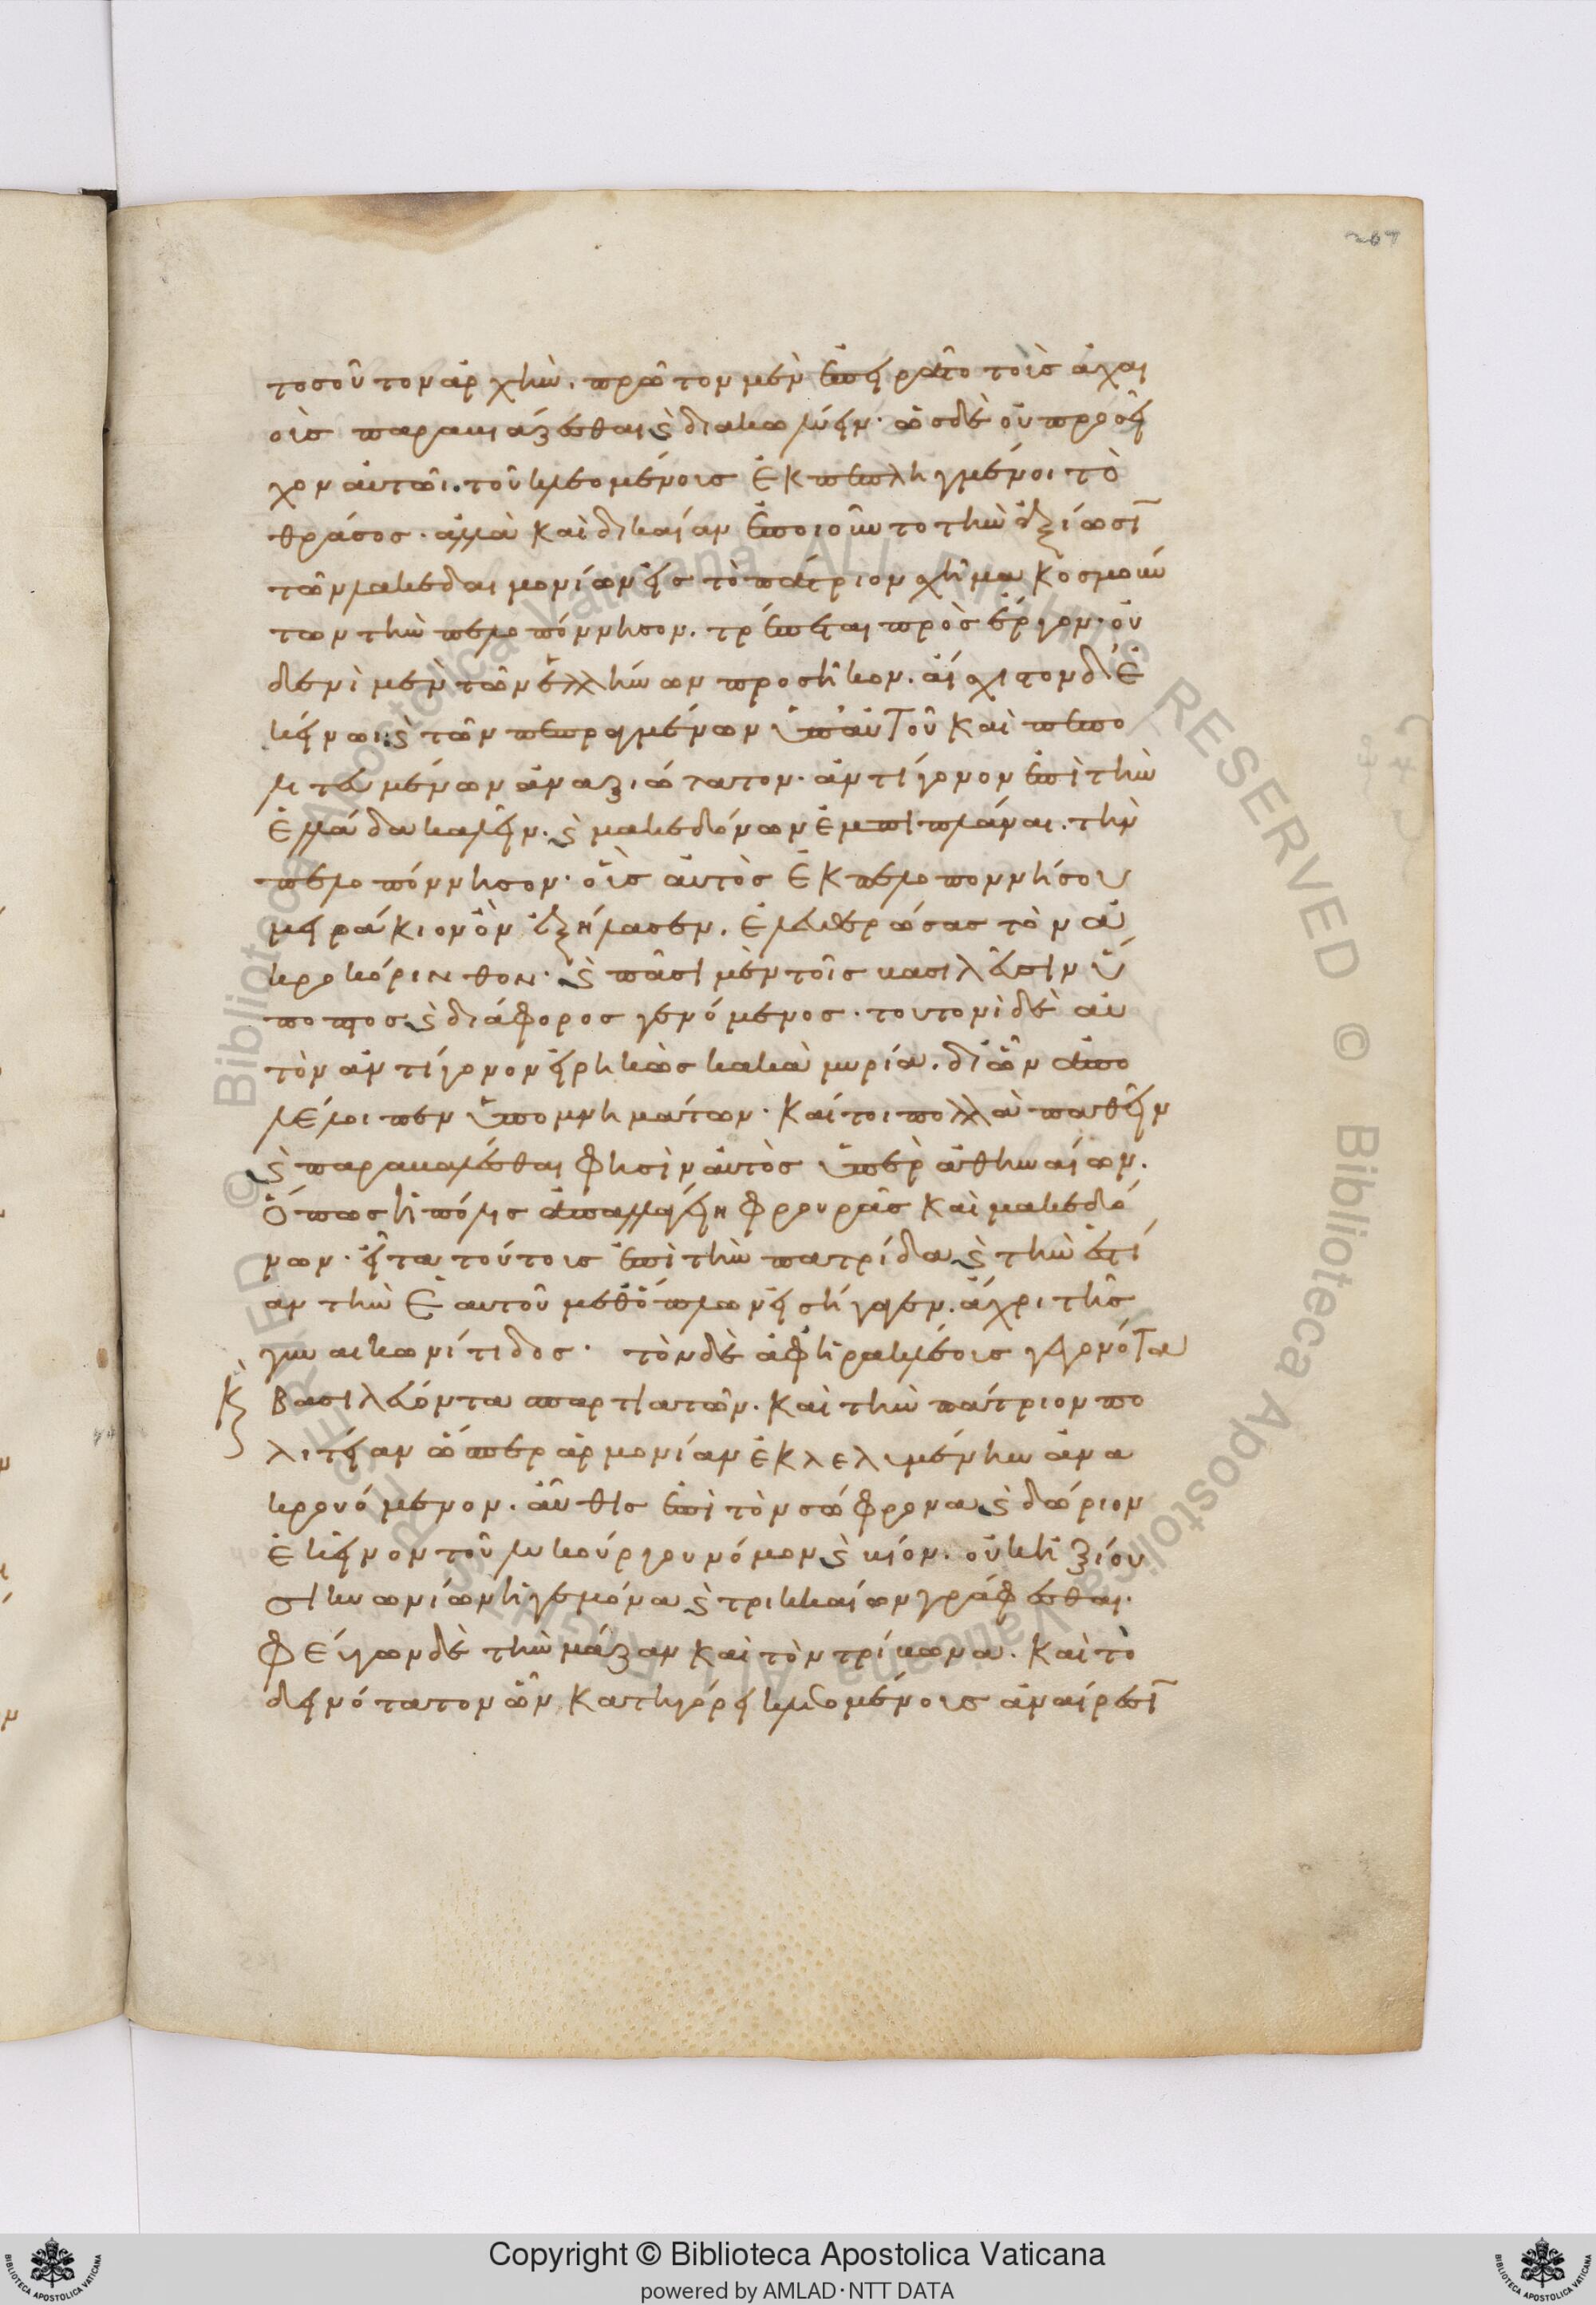 τοσοῦτον ἀρχὴν. πρῶτον μὲν ἐπειρᾶτο τοὶς ἀχαι
οὶς παραβιάζεσθαι ϛ διακωλύειν· ὡς δὲ οὐ προσεῖ
χον αὐτῶι. τοῦ κλεομένους ἐκπεπληγμένοι τὸ
θράσος. ἀλλὰ καὶ δικαίαν ἐποιοῦντο τὴν ἀξίωσῑ
τῶν λακεδαιμονίων εἰς τὸ πάτριον σχῆμα κοσμούν
των τὴν πελοπόννησον. τρέπεται πρὸς ἔργον· οὐ
δενὶ μὲν τῶν ἑλλήνων προσῆκον. αἴσχιστον δ' ἐ
κείνωι· ϛ τῶν πεπραγμένων ὑπ' αὐτοῦ καὶ πεπο
λιτευμένων ἀναξιώτατον. ἀντίγονον ἐπὶ τὴν
ἑλλάδα καλεῖν. ϛ μακεδόνων ἐμπιπλάναι. τὴν
πελοπόννησον· οὓς αὐτὸς ἐκ πελοποννήσου
μειράκιον ὢν ἐξήλασεν. ἐλευθερώσας τὸν ἀ
κροκόρινθον· ϛ πᾶσι μὲν τοῖς βασιλεῦσιν ὕ
ποπτος ϛ διάφορος γενόμενος. τουτονὶ δὲ αὐ
τὸν ἀντίγονον εἰρηκὼς κακὰ μυρία. δι' ὧν ἀπο
λέλοιπεν ὑπομνημάτων. καίτοι πολλὰ παθεῖν
ϛ παραβαλέσθαι φησὶν αὐτὸς ὑπὲρ ἀθηναίων.
ὅπως ἡ πόλις ἀπαλλαγείη φρουρᾶς καὶ μακεδό
νων· εἶτα τούτοις ἐπὶ τὴν πατρίδα ϛ τὴν ἑστί
αν τὴν ἑαυτοῦ μεθ' ὅπλων εἰσήγαγεν. ἄχρι τῆς
γυναικωνίτιδος· τὸν δὲ ἀφ' ἡρακλέους γεγονότα
βασιλεύοντα σπαρτιατῶν. καὶ τὴν πάτριον πο
λιτείαν ὥσπερ ἁρμονίαν ἐκλελυμένην ἀνα
κρουόμενον. αὖθις ἐπὶ τὸν σώφρονα ϛ δώριον
ἐκεῖνον τοῦ λυκούργου νόμον ϛ βίον. οὐκ ἠξίου
σικυωνίων ἡγεμόνα ϛ τρικκαίων γράφεσθαι.
φεύγων δὲ τὴν μάζαν καὶ τὸν τρίβωνα. καὶ τὸ
δεινότατον ὧν κατηγόρει κλεομένους ἀναίρεσῑ